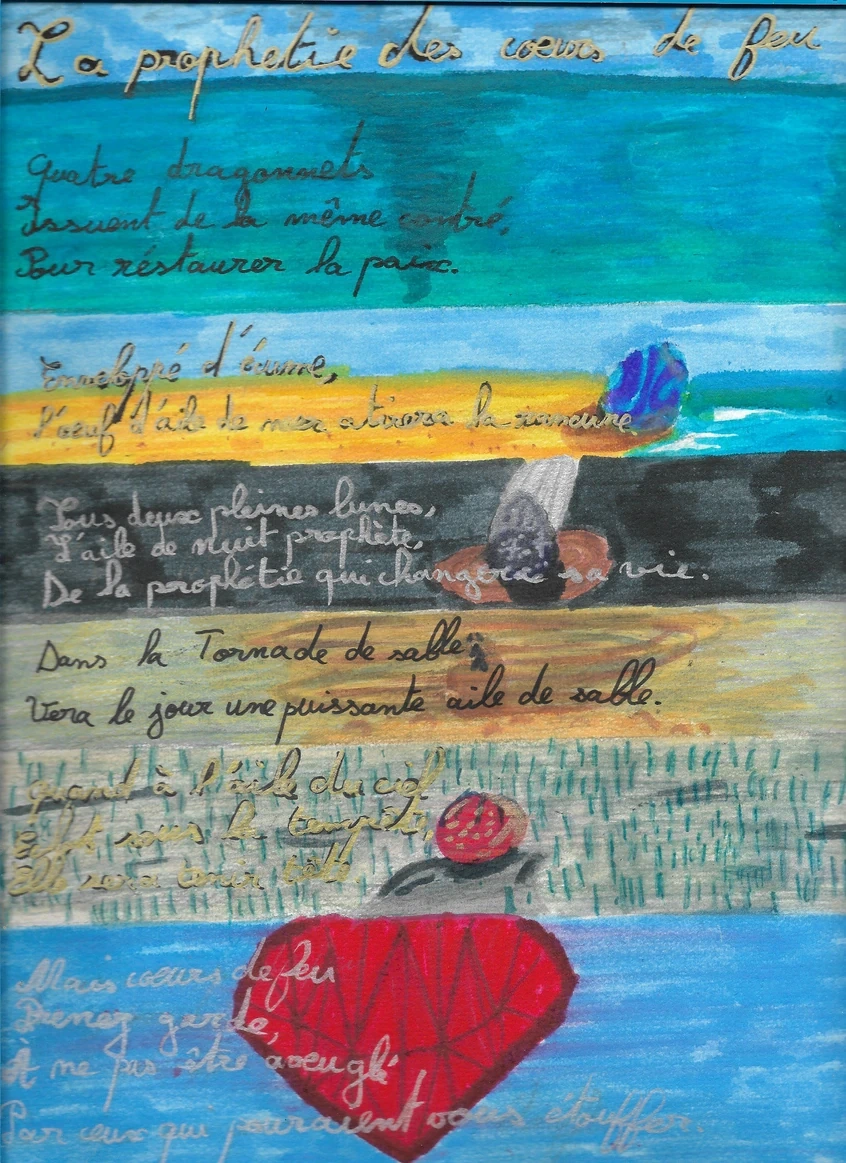 La prophetie des cœurs de feu
Quatre dragonnets
Issuent de la même contré,
Pour réstaurer la paix.
Enveloppé d'écume,
L'œuf d'aile de mer atirera la rancune
Tous deux pleines lunes,
L'aile de nuit prophète,
De la prophétie qui changera sa vie.
Dans la Tornade de sable
Vera le jour une puissante aile de sable.
quand à l'aile du ciel
sous la tempête,
Elle sera tenir tête
Mais cœurs de feu
Prenez garde,
À ne pas être aveuglé
Par ceux qui pouraient vous étouffer.